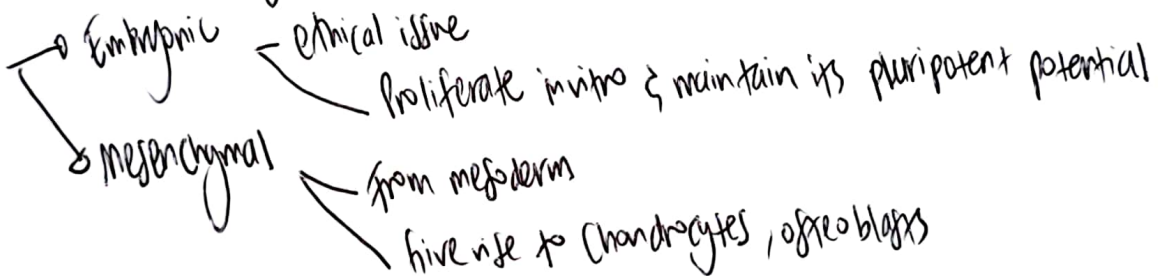 Embryonic
ethical issue
Proliferate invitro & maintain its pluripotent potential
mesenchymal
from mesoderm
Give rise to Chondrocytes, osteoblasts